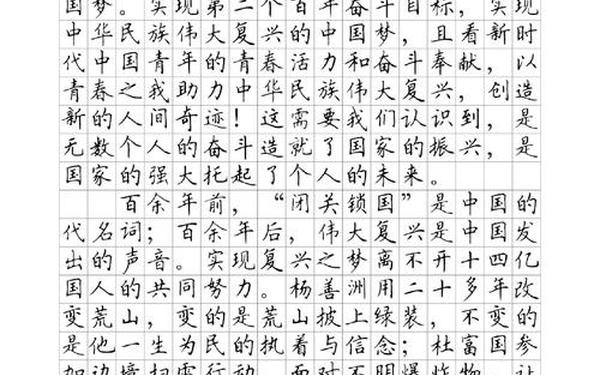 国梦。实现第二个百年奋斗目标，实现
中华民族伟大复兴的中国梦，且看新时
代中国青年的青春活力和奋斗奉献，以
青春之我助力中华民族伟大复兴，创造
新的人间奇迹！这需要我们认识到，是
无数个人的奋斗造就了国家的振兴，是
国家的强大托起了个人的未来。
百余年前，“闭关锁国”是中国的
代名词；百余年后，伟大复兴是中国发
出的声音。实现复兴之梦离不开十四亿
国人的共同努力。杨善洲用二十多年改
变荒山，变的是荒山披上绿装，不变的
是他一生为民的执着与信念；杜富国参
加边境扫雷行动，面对不明爆炸物，让